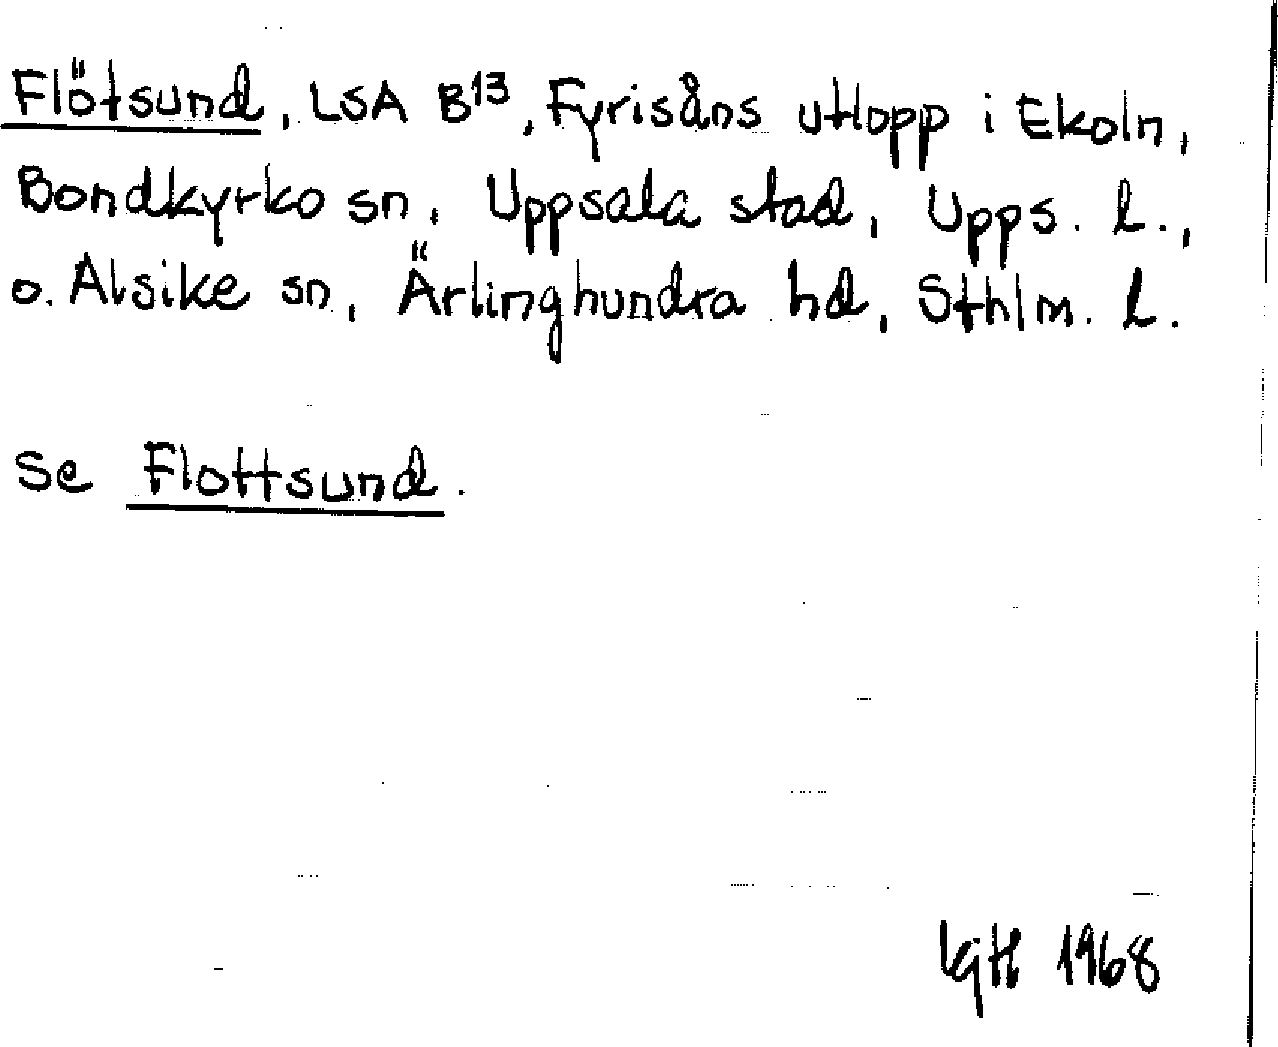 Flötsund, LSA B13, Fyrisåns utlopp i Ekoln,
Bondkyrko sn, Uppsala stad, Upps. l.,
o. Alsike sn, Ärlinghundra hd, Sthlm. l.
se Flottsund.
1968